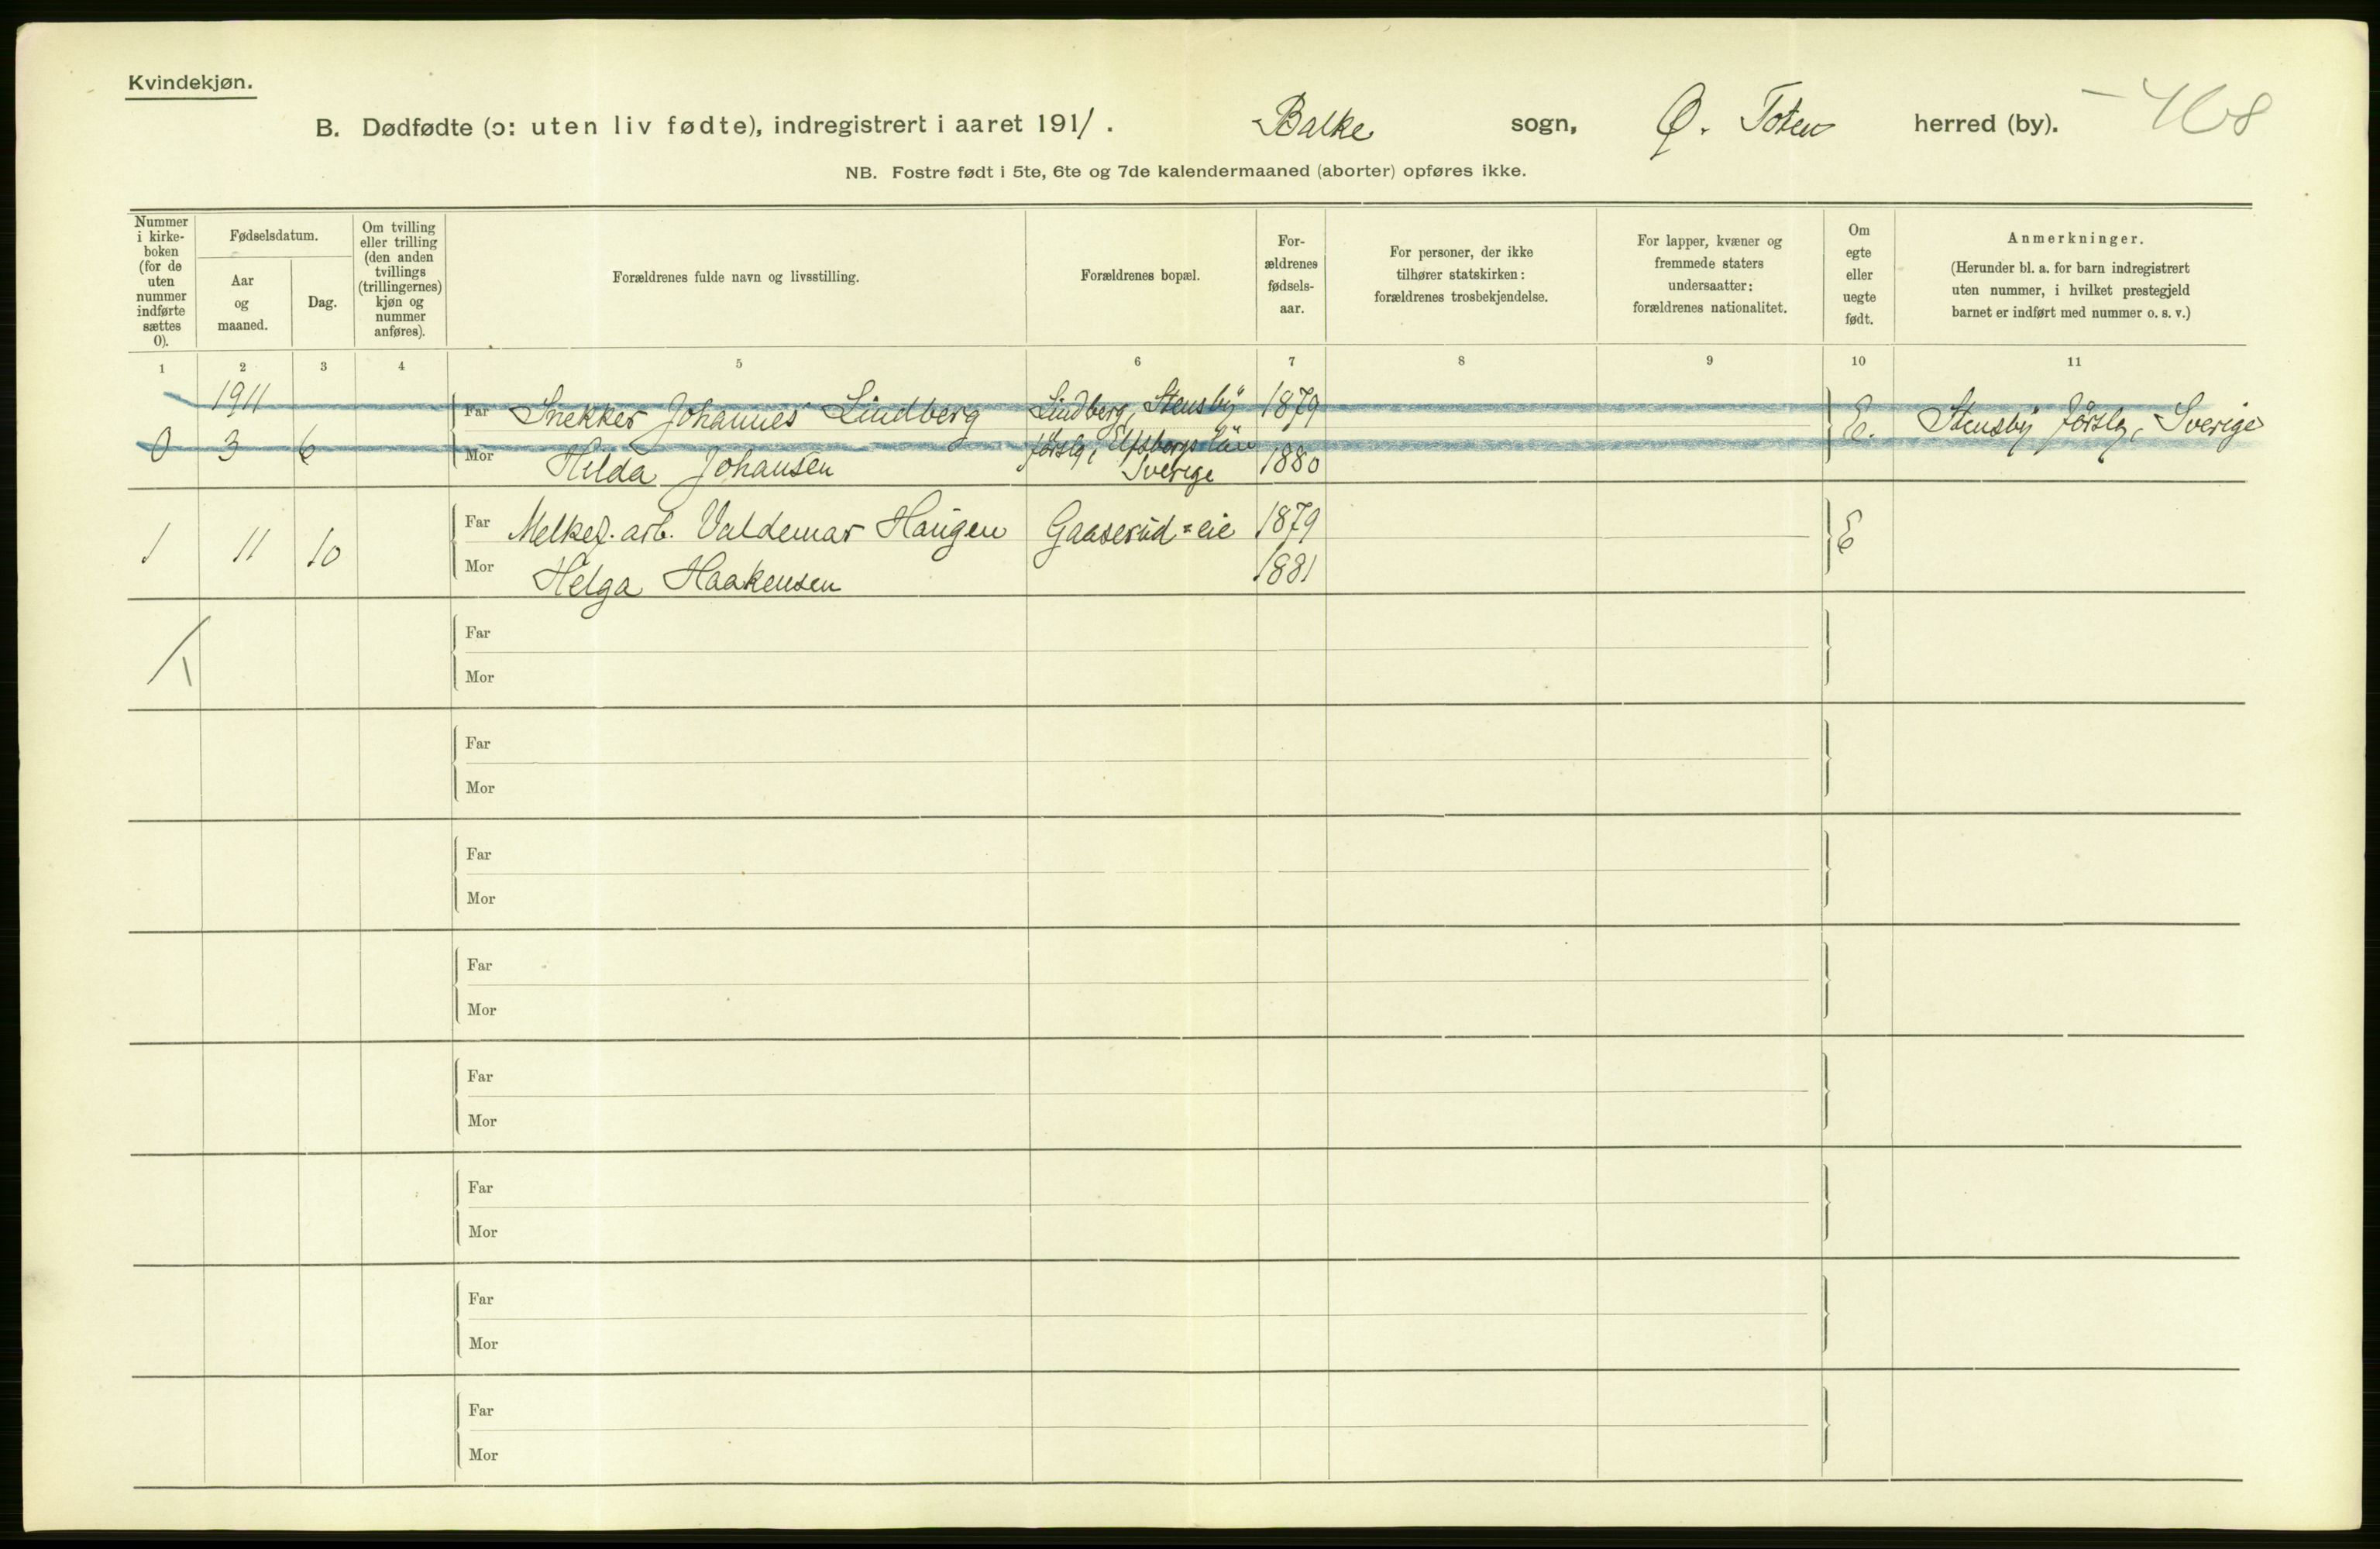 Kvindekjøn.
B. Dødfødte (ɔ: uten liv fødte), indregistrert i aaret 1911. Balke sogn, Ø. Toten herred (by). 408
NB. Fostre født i 5te, 6te og 7de kalendermaaned (aborter) opføres ikke.
Nummer i kirke-boken (for de uten nummer indførte sættes 0).
Fødselsdatum.
Aar og maaned.
Dag.
Om tvilling eller trilling (den anden tvillings (trillingernes) kjøn og nummer anføres).
Forældrenes fulde navn og livsstilling.
Forældrenes bopæl.
For-ældrenes fødsels-aar.
For personer, der ikke tilhører statskirken: forældrenes trosbekjendelse.
For lapper, kvæner og fremmede staters undersaatter: forældrenes nationalitet.
Om egte eller uegte født.
Anmerkninger.
(Herunder bl. a. for barn indregistrert uten nummer, i hvilket prestegjeld barnet er indført med nummer o. s. v.)
1 2 3 4 5 6 7 8 9 10 11
1911 Far Snekker Johannes Lindberg Lindberg, Stensby 1879
0 3 6 Mor Hilda Johansen Förslg, Elfsborgs Län Sverige 1880 E. Stensby Förslg, Sverige
1 11 10 Far Melkef. arb. Valdemar Haugen Gaaserud=eie 1879 E
Mor Helga Haakensen 1881
1
Far
Mor
Far
Mor
Far
Mor
Far
Mor
Far
Mor
Far
Mor
Far
Mor
Far
Mor